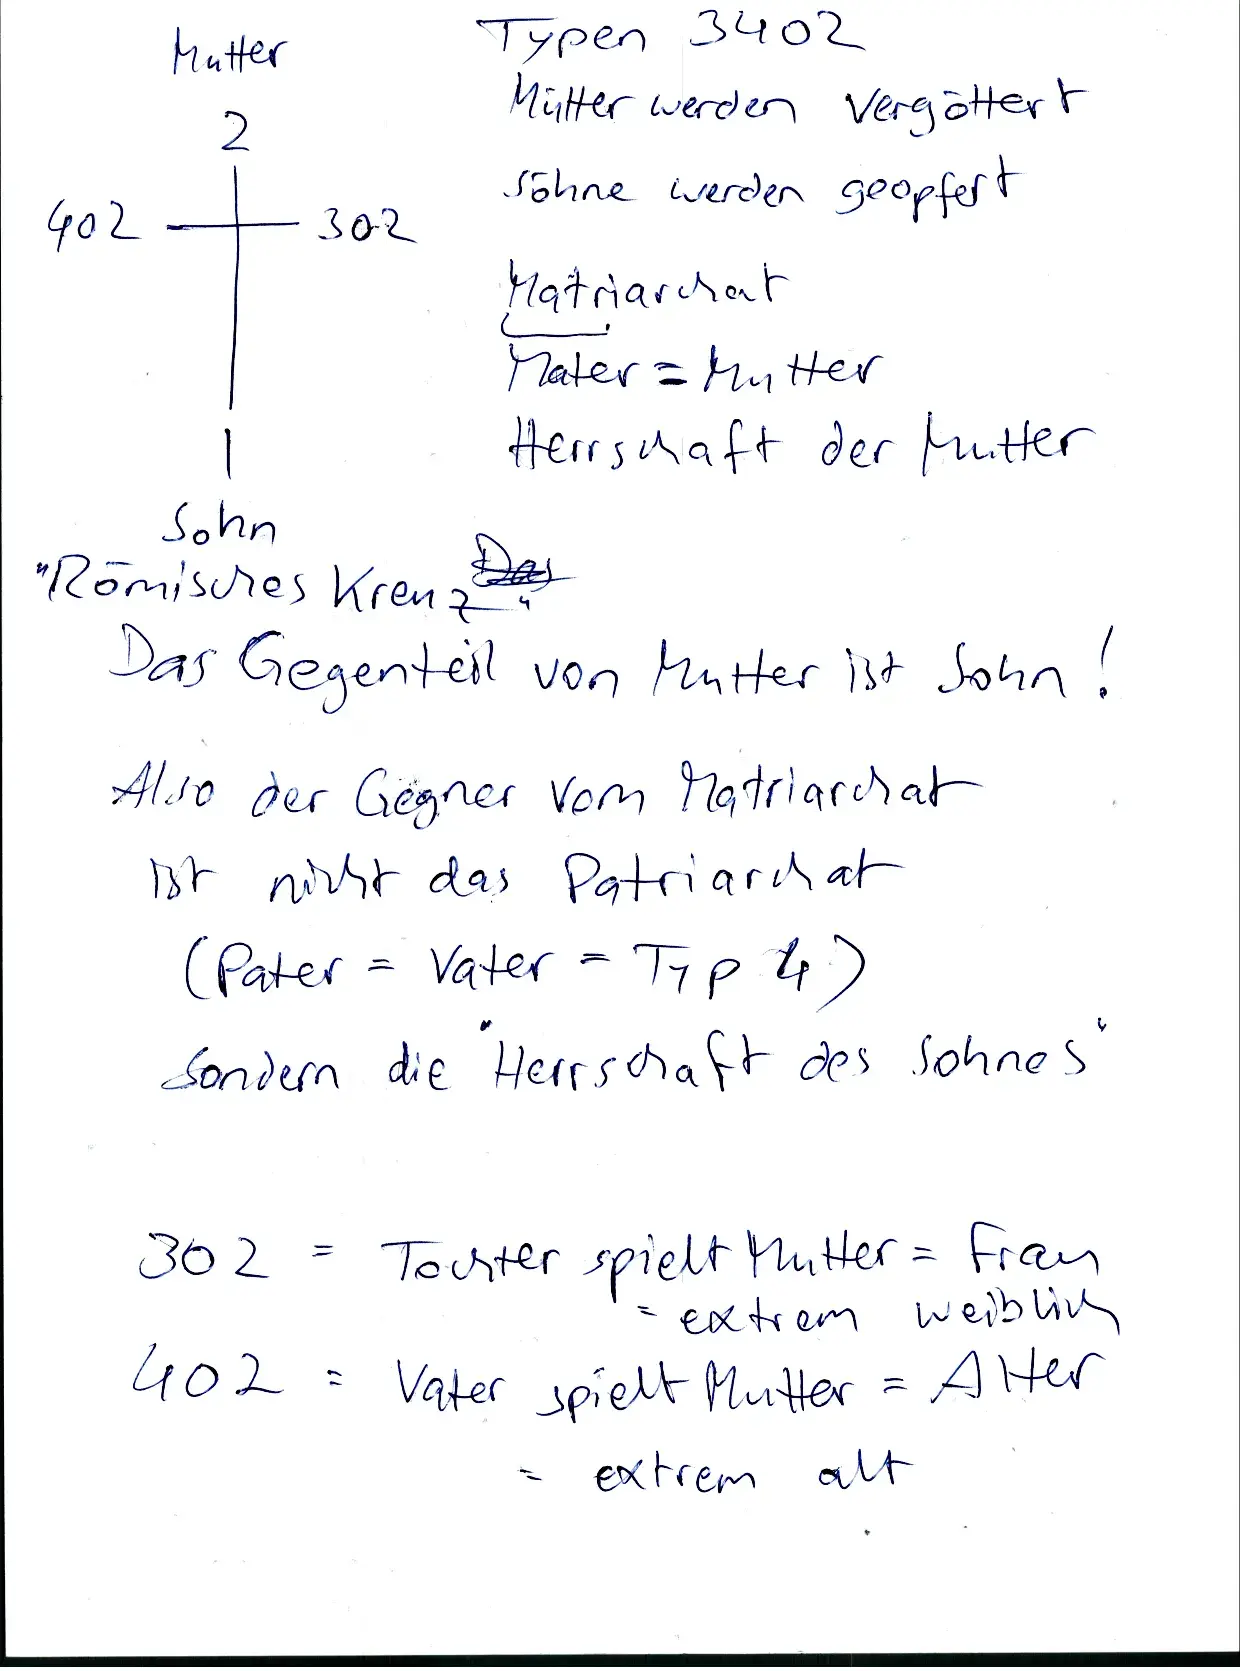 Mutter
2
402 302
1
Sohn
"Römisches Kreuz"
Typen 3402
Mütter werden vergöttert
Söhne werden geopfert
Matriarchat
Mater = Mutter
Herrschaft der Mutter
Das Gegenteil von Mutter ist Sohn!
Also der Gegner vom Matriarchat
ist nicht das Patriarchat
(Pater = Vater = Typ 4)
sondern die "Herrschaft des Sohnes"
302 = Tochter spielt Mutter = Frau
= extrem weiblich
402 = Vater spielt Mutter = Alter
= extrem alt